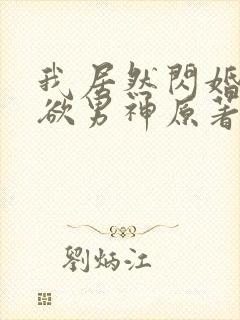 我居然閃婚
欲男神原著
劉炳江